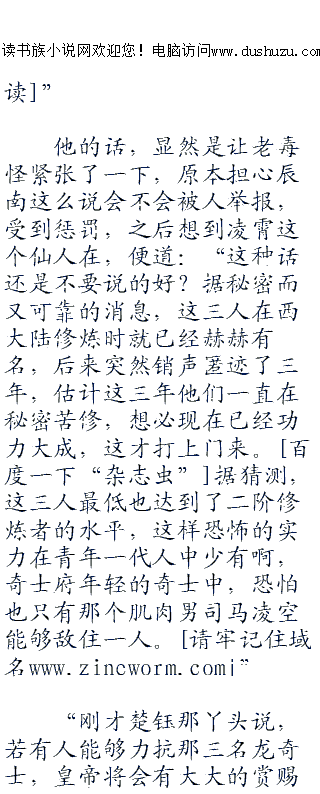 读书族小说网欢迎您！电脑访问www.dushuzu.com
读]”
他的话，显然是让老毒
怪紧张了一下，原本担心辰
南这么说会不会被人举报，
受到惩罚，之后想到凌霄这
个仙人在，便道：“这种话
还是不要说的好？据秘密而
又可靠的消息，这三人在西
大陆修炼时就已经赫赫有
名，后来突然销声匿迹了三
年，估计这三年他们一直在
秘密苦修，想必现在已经功
力大成，这才打上门来。[百
度一下“杂志虫”]据猜测，
这三人最低也达到了二阶修
炼者的水平，这样恐怖的实
力在青年一代人中少有啊，
奇士府年轻的奇士中，恐怕
也只有那个肌肉男司马凌空
能够敌住一人。[请牢记住域
名www.zincworm.com¡”
“刚才楚钰那丫头说，
若有人能够力抗那三名龙奇
士，皇帝将会有大大的赏赐